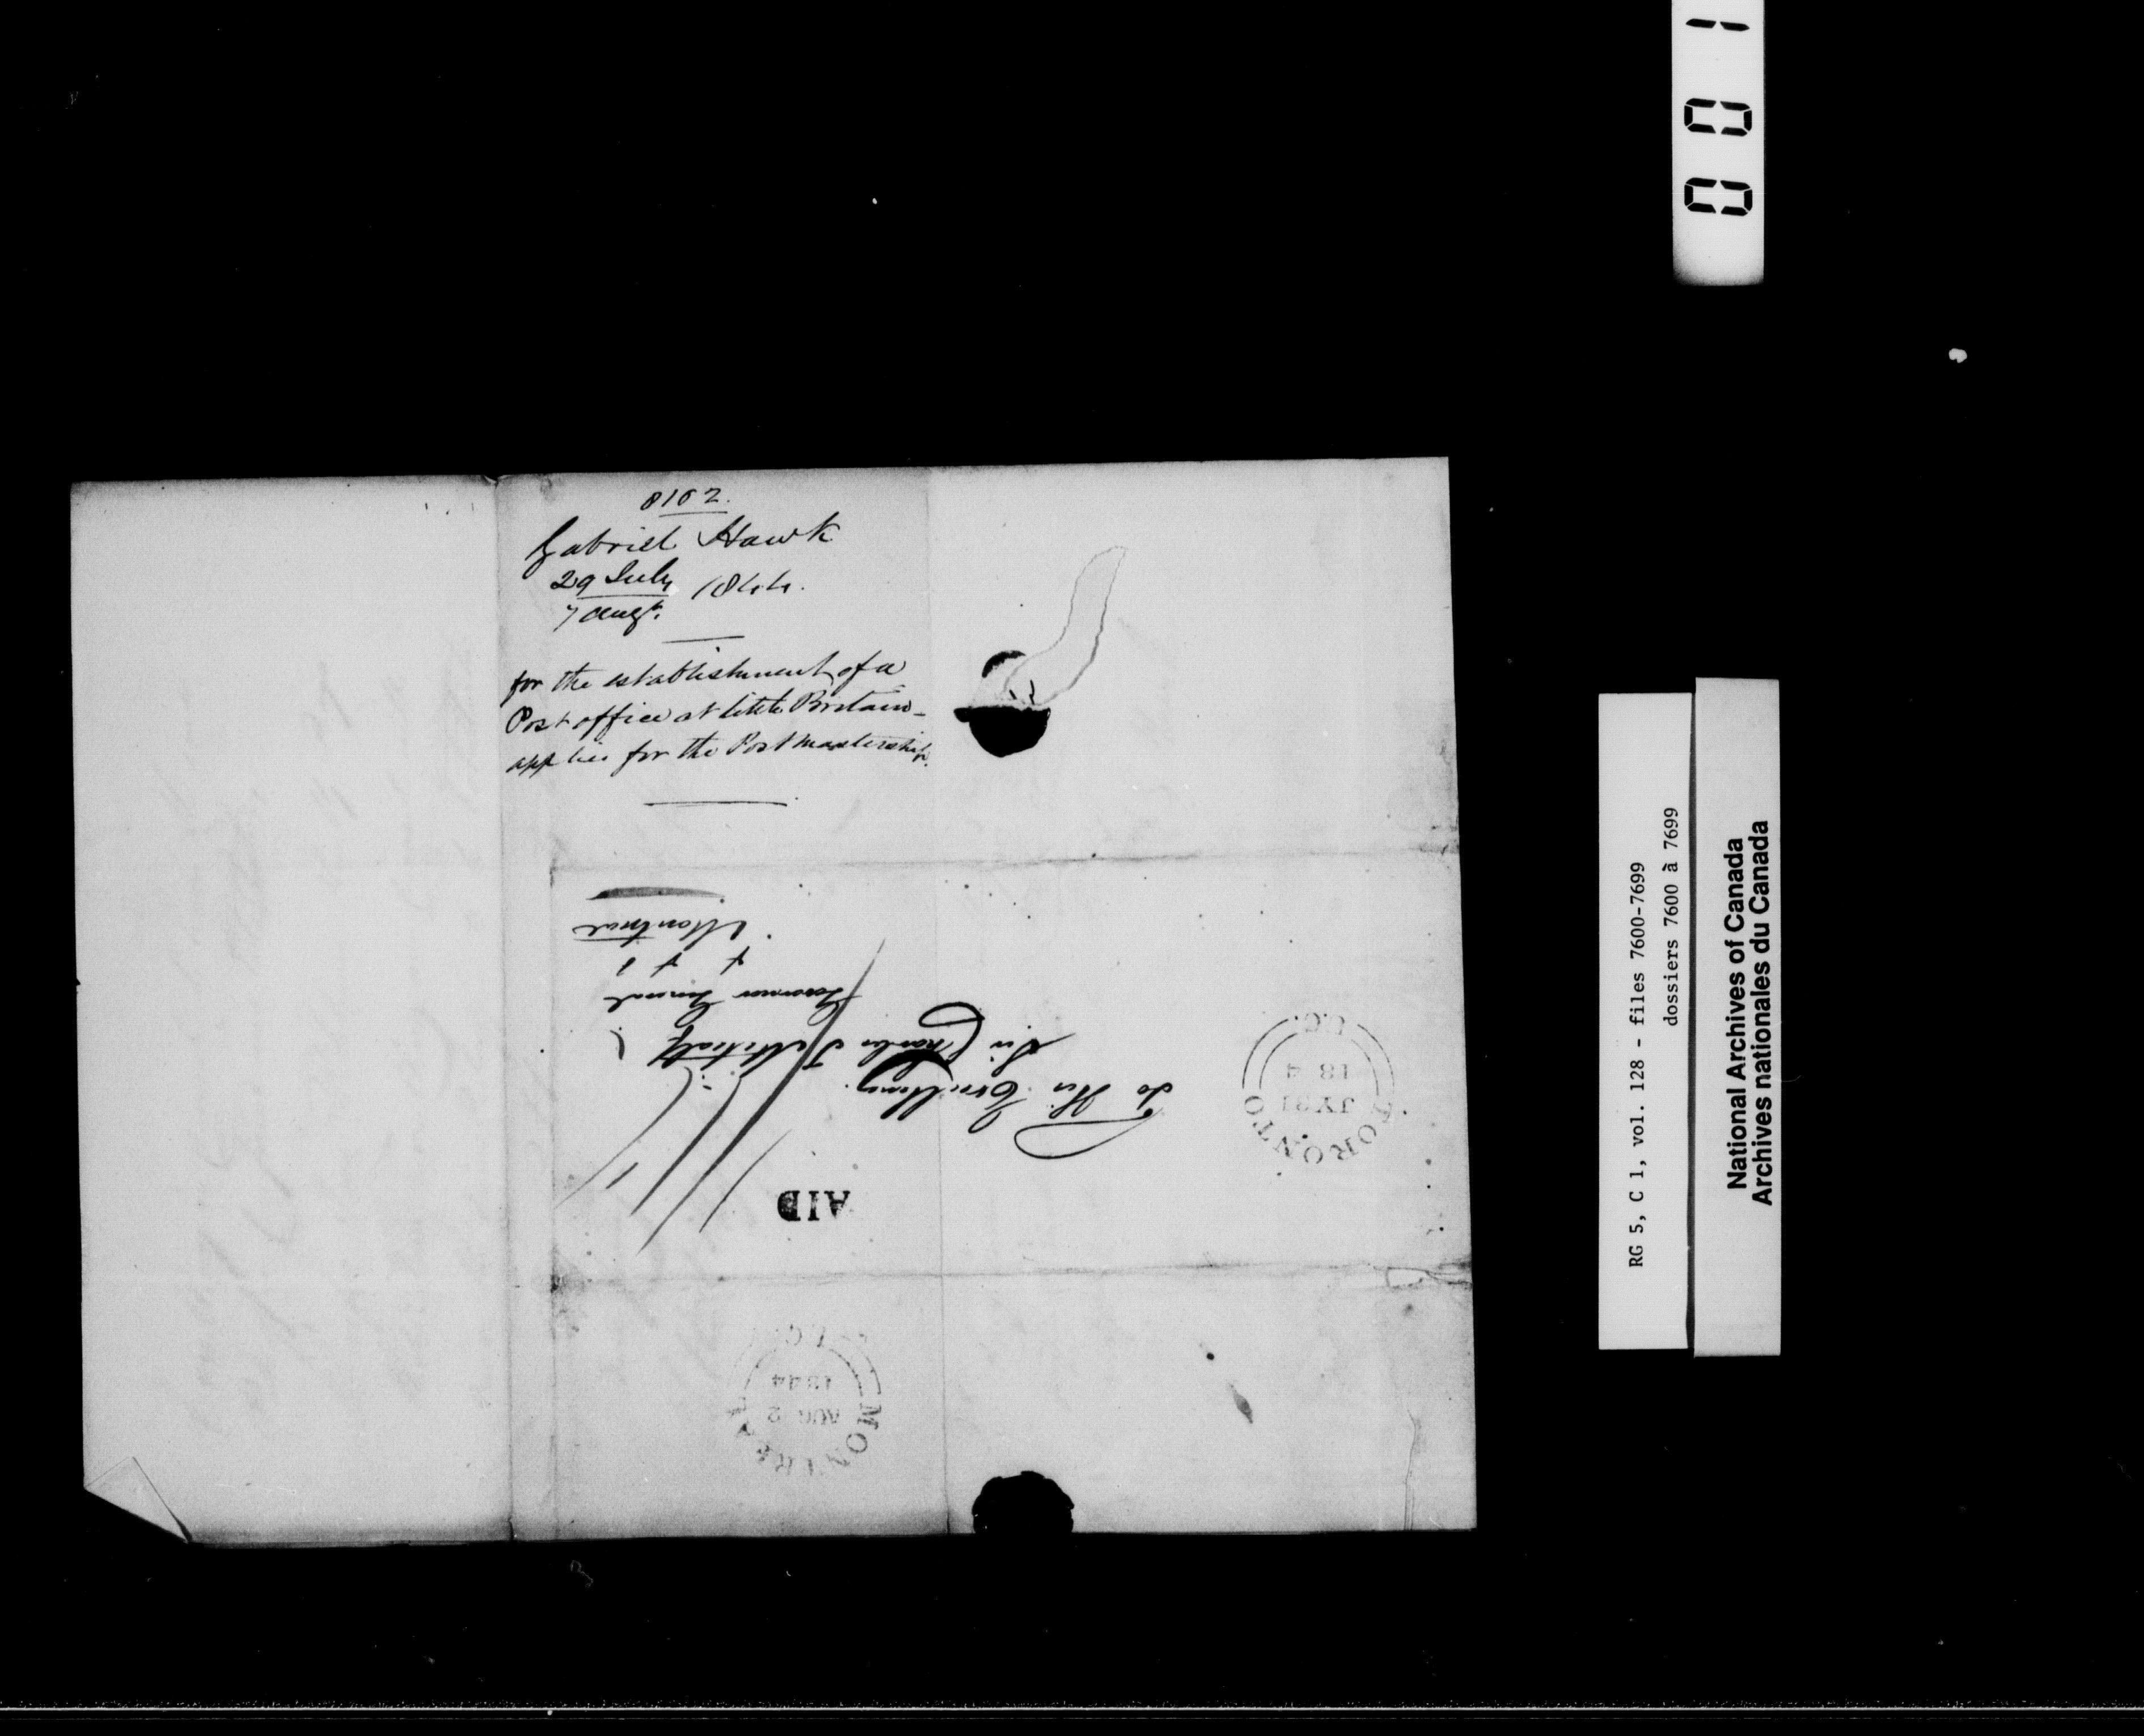 8102.
Gabriel Hawk
29 July
7 Augt. 1844.
for the establishment of a
Post office at little Britain -
applies for the Postmastership.
To His Excellency
Sir Charles T Metcalf
Governor General
Montreal
PAID
TORONTO
JY 31
184
U.C.
MONTREAL
AUG 2
1844
L.C.
001
RG 5, C 1, vol. 128 - files 7600-7699
dossiers 7600 à 7699
National Archives of Canada
Archives nationales du Canada